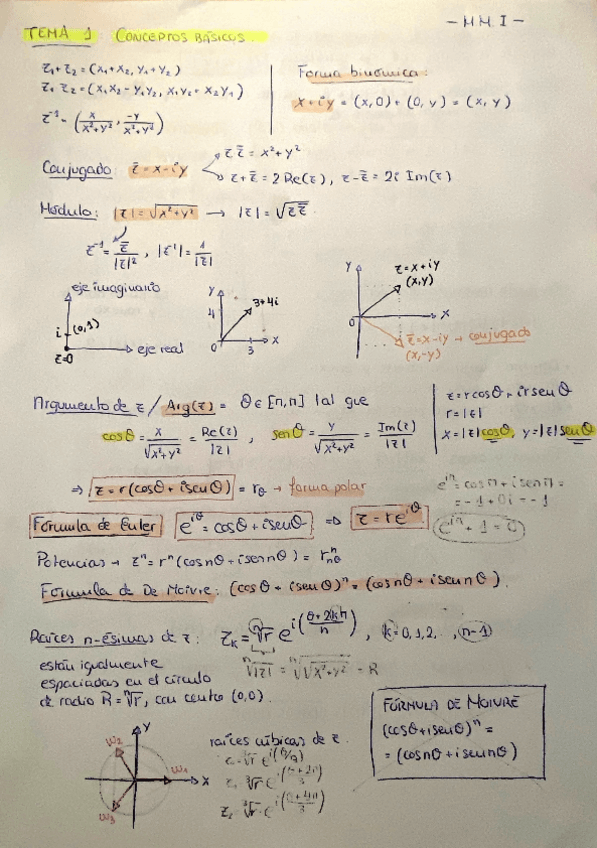 - M.M.I -
TEMA 1: CONCEPTOS BÁSICOS.
z₁+z₂ = (x₁+x₂, y₁+y₂)
z₁ z₂ = (x₁x₂ - y₁y₂, x₁y₂ + x₂y₁)
z⁻¹ = (x/(x²+y²), -y/(x²+y²))
Forma binómica:
x+iy = (x,0) + (0,y) = (x,y)
Conjugado: z̄ = x-iy
z z̄ = x²+y²
z+z̄ = 2 Re(z), z-z̄ = 2i Im(z)
Módulo: |z| = √(x²+y²) → |z| = √(z z̄)
z⁻¹ = z̄/|z|², |z⁻¹| = 1/|z|
eje imaginario
i (0,1)
z=0
eje real
y
4
3+4i
0
3
x
y
z=x+iy
(x,y)
0
x
z̄=x-iy → conjugado
(x,-y)
Argumento de z / Arg(z) = θ∈[π,π] tal que
cosθ = x/√(x²+y²) = Re(z)/|z| , senθ = y/√(x²+y²) = Im(z)/|z|
z=rcosθ+irsenθ
r=|z|
x=|z|cosθ, y=|z|senθ
⇒ z=r(cosθ+isenθ) = r_θ → forma polar
e^(iπ) = cosπ+isenπ =
= -1+0i = -1
e^(iπ)+1=0
Fórmula de Euler e^(iθ) = cosθ+isenθ ⇒ z=re^(iθ)
Potencias → zⁿ = rⁿ(cosnθ+isennθ) = rⁿ_nθ
Fórmula de De Moivre: (cosθ+isenθ)ⁿ = (cosnθ+isennθ).
Raíces n-ésimas de z: z_k = ⁿ√r e^(i((θ+2kπ)/n)) , k=0,1,2,..., (n-1)
ⁿ√|z| = ⁿ√(√(x²+y²)) = R
están igualmente
espaciadas en el círculo
de radio R=ⁿ√r, con centro (0,0).
FÓRMULA DE MOIVRE
(cosθ+isenθ)ⁿ =
= (cosnθ+isennθ)
y
w₂
w₁
x
w₃
raíces cúbicas de z.